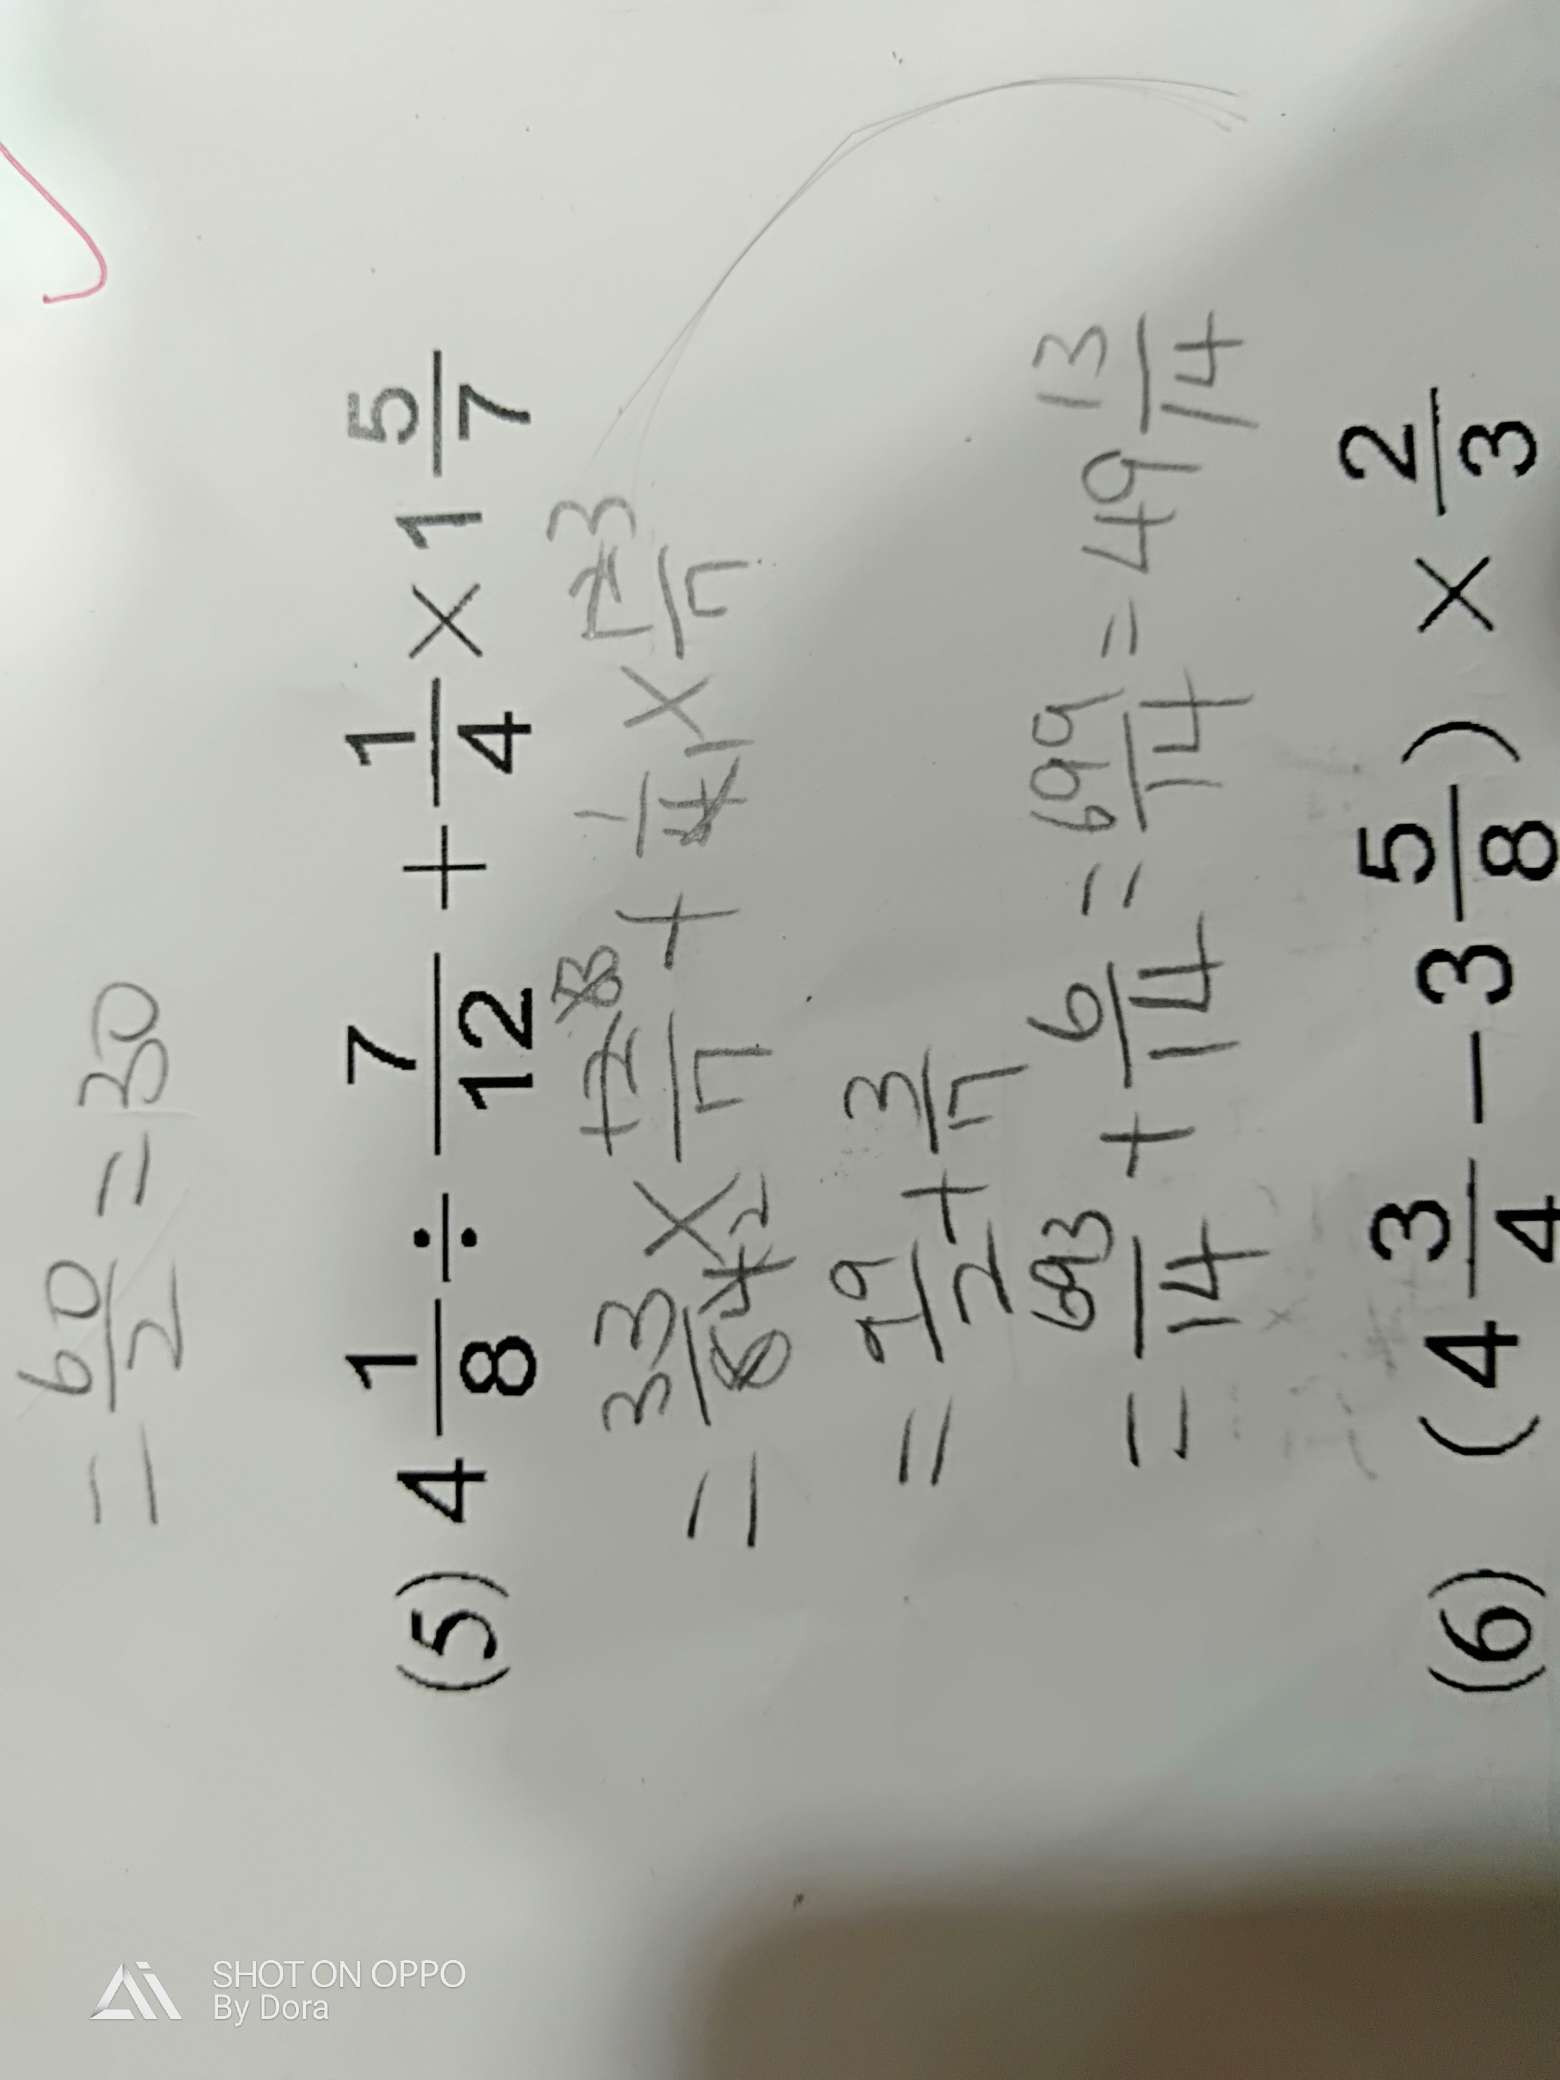 = 60/2 = 30
(5) 4 1/8 ÷ 7/12 + 1/4 × 1 5/7
= 33/8 4 2 × 12 3/7 + 1/4 1 × 12 3/7
= 99/2 + 3/7
= 693/14 + 6/14 = 699/14 = 49 13/14
(6) (4 3/4 - 3 5/8) × 2/3
SHOT ON OPPO
By Dora